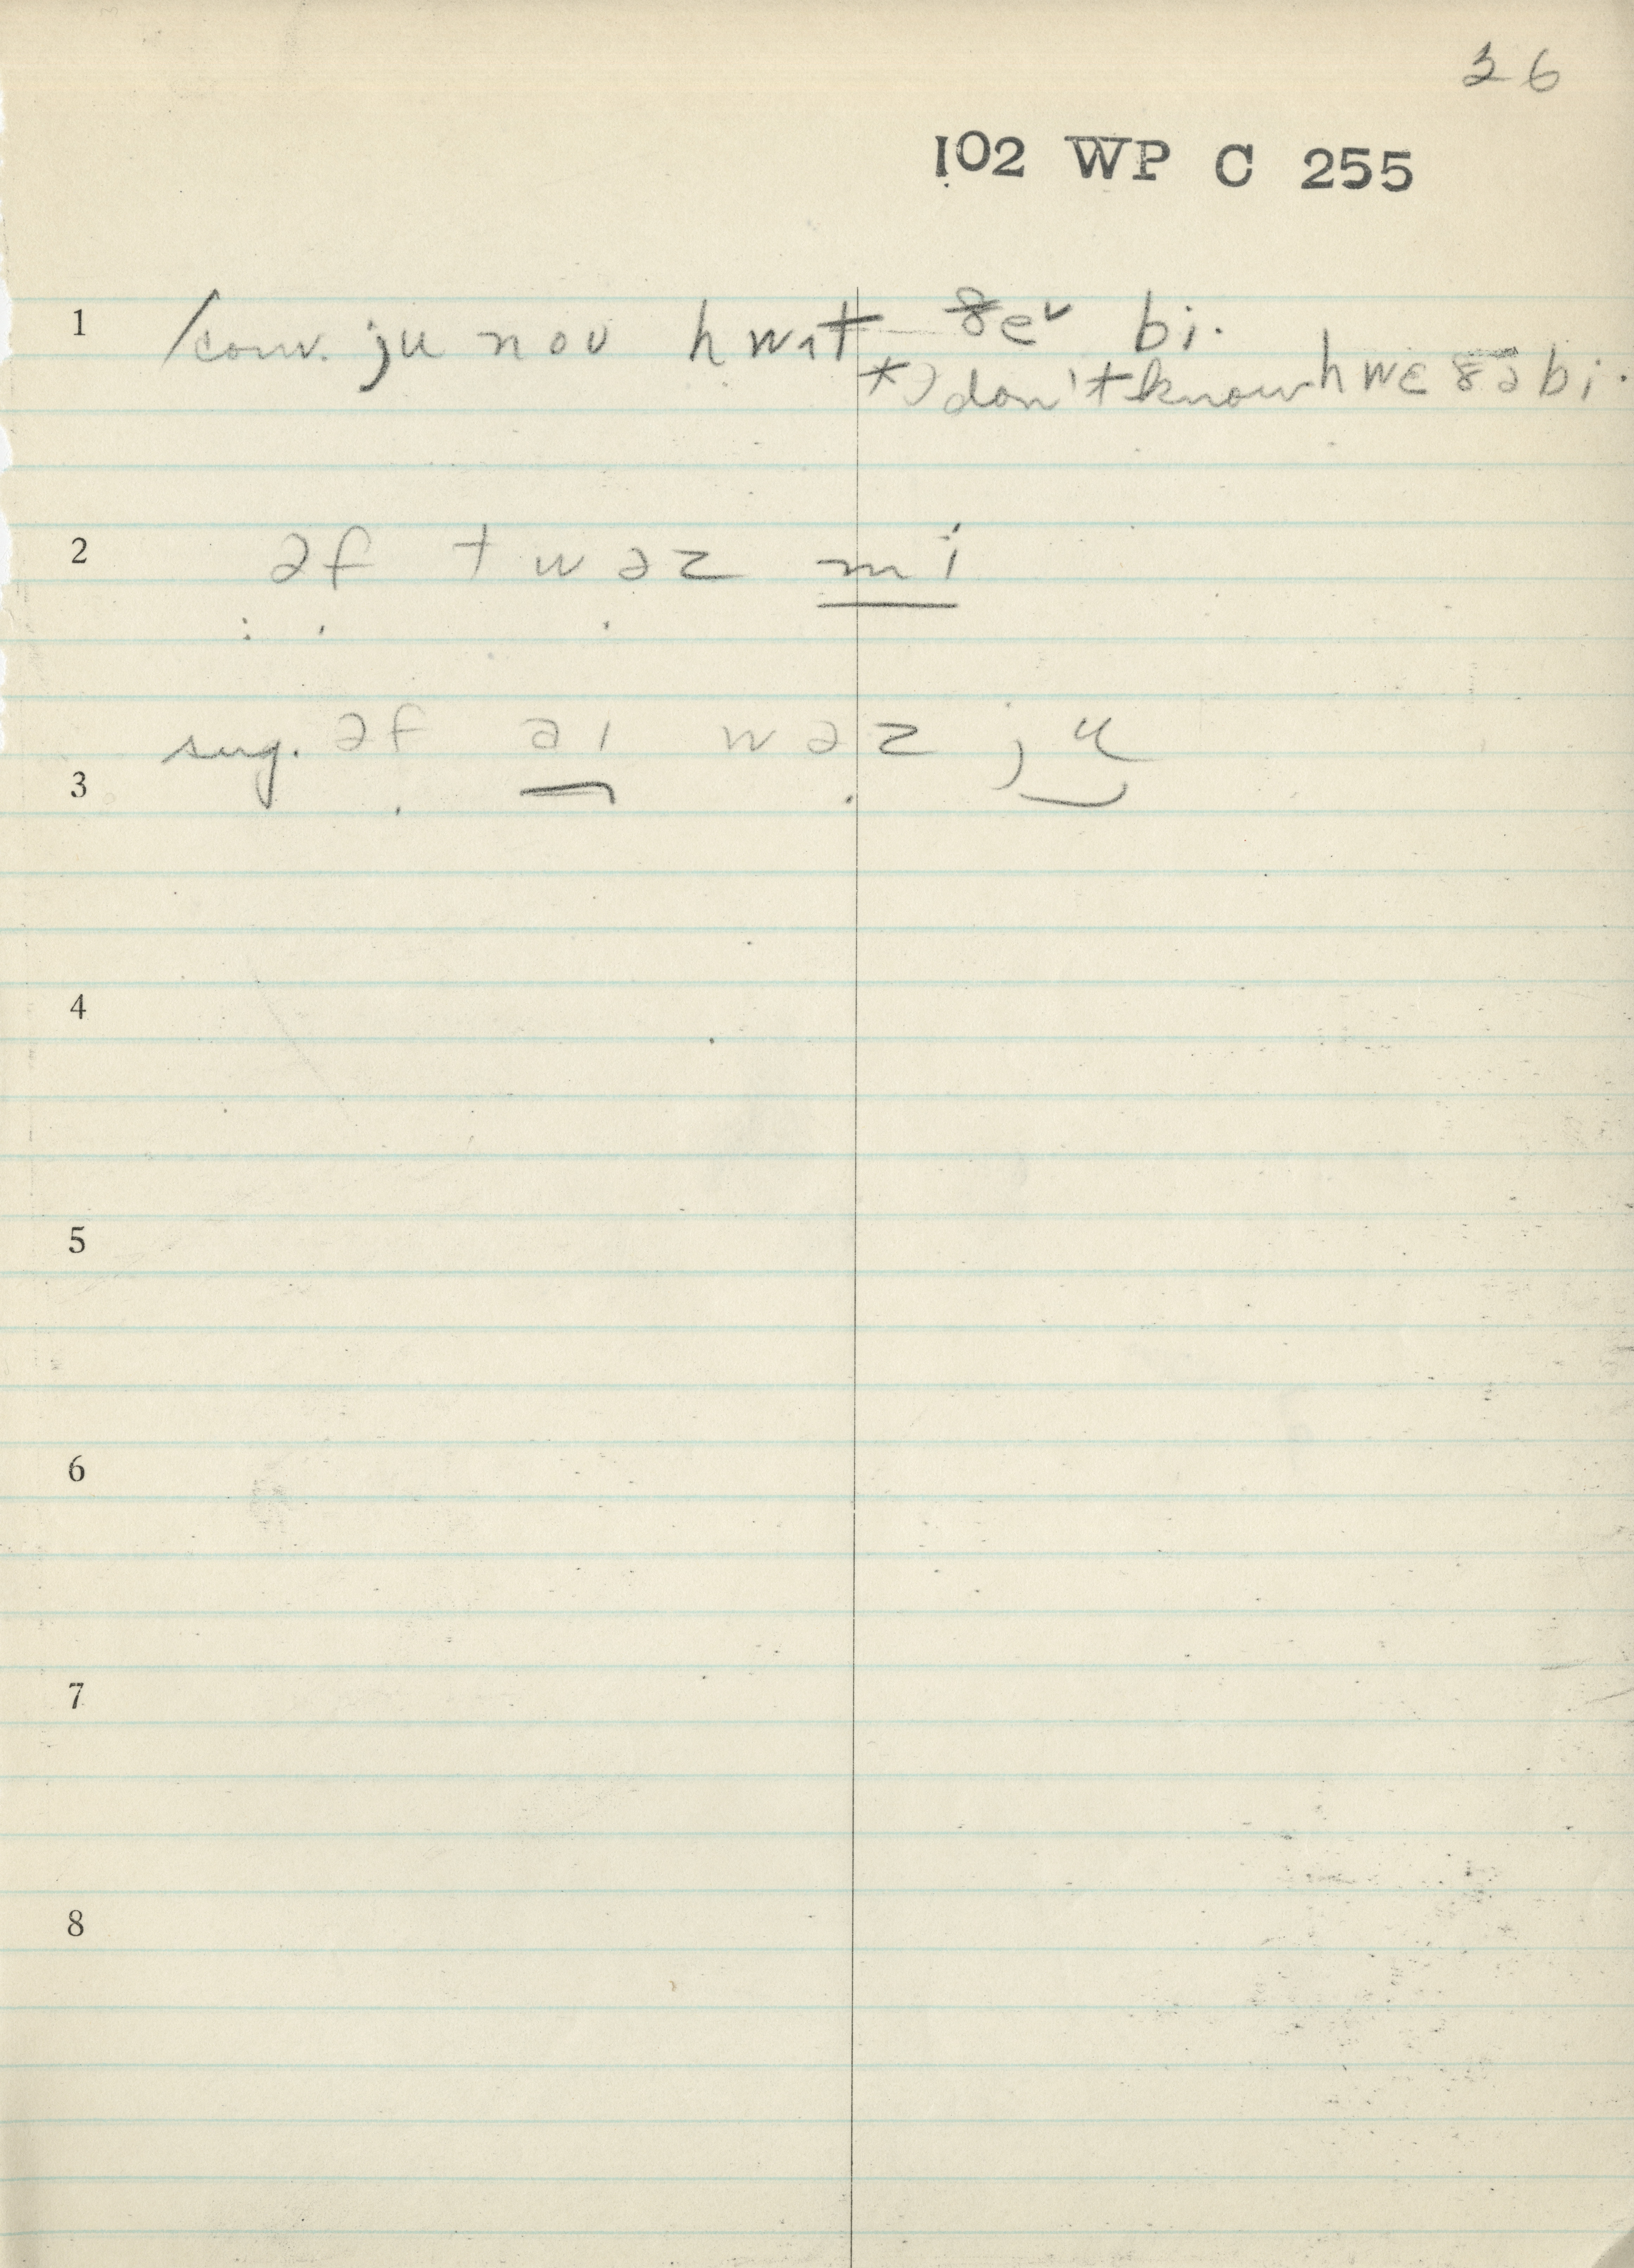 36
102 WP C 255
1 /conv. ju noʊ hwɑt ðeɪ bi.
*) don't know hwɛðə bi.
2 əf twəz mi
3 sug. əf aɪ wəz ju
4
5
6
7
8